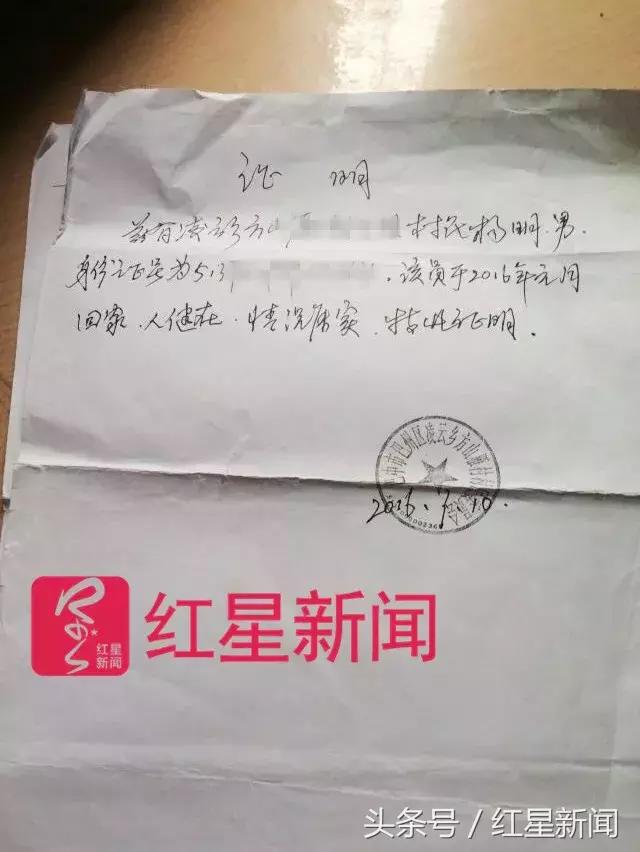 证 明
兹有凌云乡方山 村民杨明,男,
身份证号为513 ,该员于2016年元月
回家,人健在,情况属实,特此证明。
巴中市巴州区凌云乡方山雁村村民委员会
2016.7.10.
红星新闻
红星新闻
头条号 / 红星新闻